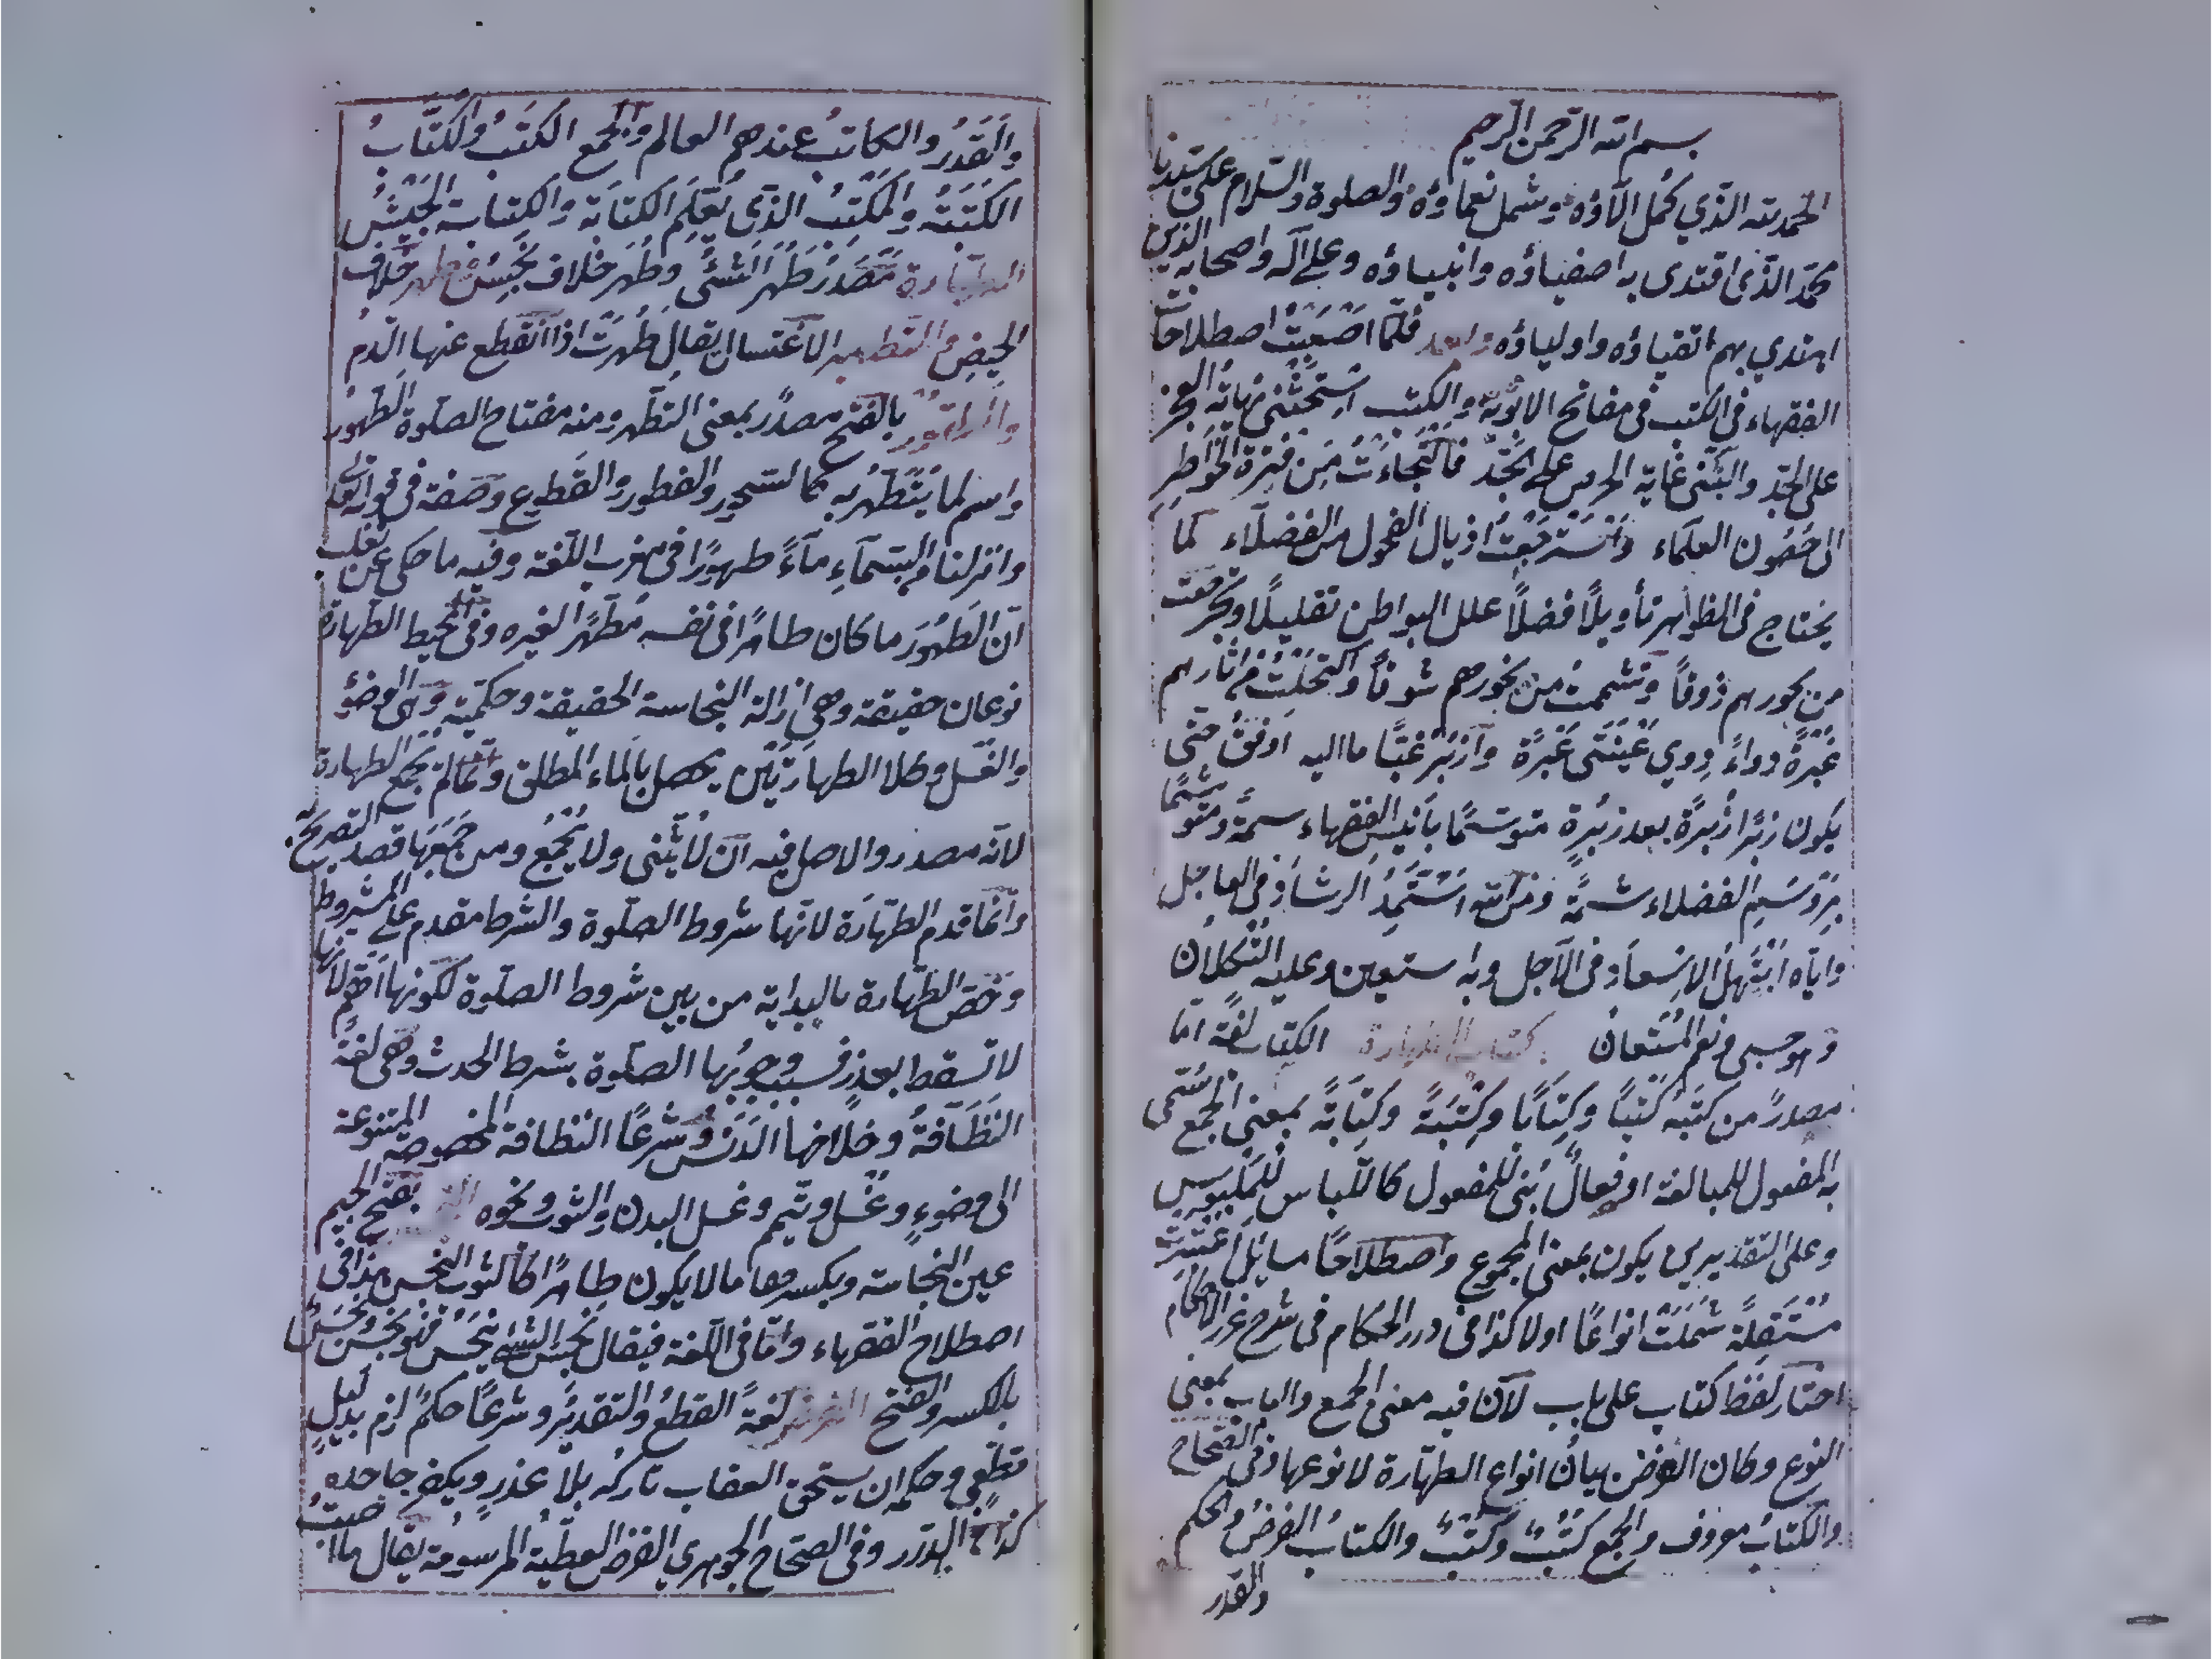 بسم الله الرحمن الرحيم
الحمد لله الذي كمل آلاؤه وشمل نعماؤه والصلوة والسلام على سيدنا
محمد الذى اقتدى به اصفياؤه وانبياؤه وعلى آله واصحابه الذين
اهتدي بهم اتقياؤه واولياؤه وبعد فلما اصعبت اصطلاحات
الفقهاء فى الكتب فى مفاتح الابوبة والكتب استحثنى نهاية العجز
على الجد والبثنى غاية الحرص على بجد فالتجاءت من فترة الخواطر
الى حصون العلماء واسترجعت اذيال الفحول من الفضلاء كما
يحتاج فى الظواهر تأويلاً فضلاً علل البواطن تقليلاً وتجرعت
من بحورهم ذوقاً وتشممت من بخورهم شوقاً واكتحلت من اثارهم
غبرةً دواءً عينتى غبرةً ما اليه اوفق حتى
يكون زبرًا زبرةً بعد زبرة متوسمًا بانيس الفقهاء سمةً ومتوشمًا
الفضلاء شمةً ومن الله استمد الرشاد فى العاجل
واياه ابتهل الاسعاد فى الآجل وبه استعين وعليه التكلان
وهو حسبى ونعم المستعان كتاب الطهارة الكتاب لغة اما
مصدر من كتبه كتبًا وكتابًا وكتبةً وكتابةً بمعنى الجمع سمى
به المفعول للمبالغة او فعال بنى للمفعول كاللباس للملبوس
وعلى التقديرين يكون بمعنى المجموع واصطلاحًا مسايل اعتبرت
مستقلةً شملت انواعًا اولا كذا فى درر الحكام فى شرح غرر الاحكام
اختار لفظ كتاب على باب لان فيه معنى الجمع والباب بمعنى
النوع وكان الغرض بيان انواع الطهارة لا نوعها وفى الصحاح
والكتاب معروف والجمع كتب وكتب والكتاب الفرض والحكم
والقدر
والقدر والكاتب عندهم العالم والجمع الكتب والكتاب
الكتبة والمكتب الذى يعلم الكتابة والكتيبة الجيش
الطهارة مصدر طهر الشئ وطهر خلاف نجس وطهر خلاف
الحيض والتطهير الاغتسال يقال طهرت اذا انقطع عنها الدم
والطهور بالفتح مصدر بمعنى التطهر ومنه مفتاح الصلوة الطهور
واسم لما يتطهر به كالسحور والفطور والقطيع وصفة فى قوله تعالى
وانزلنا من السماء ماءً طهورًا فى مغرب اللغة وفيه ما حكى عن ثعلب
ان الطهور ما كان طاهرًا فى نفسه مطهرًا لغيره وفى المحيط الطهارة
نوعان حقيقة وهى ازالة النجاسة الحقيقة وحكمية وهى الوضؤ
والغسل وكلا الطهارتين يحصل بالماء المطلق وانما لم يجمع الطهارة
لانه مصدر والاصل فيه ان لا يثنى ولا يجمع ومن جمعها قصد التصريح به
وانما قدم الطهارة لانها شروط الصلوة والشرط مقدم على المشروط
وخص الطهارة بالبداية من بين شروط الصلوة لكونها اهم لانها
لا تسقط بعذر فسبب وجوبها الصلوة بشرط الحدث وهى لغة
النظافة وخلافها الدنس وشرعًا النظافة المخصوصة المتنوعة
الى وضوء وغسل وتيمم وغسل البدن والثوب ونحوه بفتح الجيم
عين النجاسة وبكسرها ما لا يكون طاهرًا كالثوب النجس هذا فى
اصطلاح الفقهاء واما فى اللغة فيقال نجس الشئ ينجس فهو نجس ونجس
بالكسر والفتح الفرض لغةً القطع والتقدير وشرعًا حكم لزم بدليل
قطعي وحكمه ان يستحق العقاب تاركه بلا عذر ويكفر جاحده
كذا فى الدرر وفى الصحاح الجوهري الفرض العطية المرسومة يقال ما اصبت